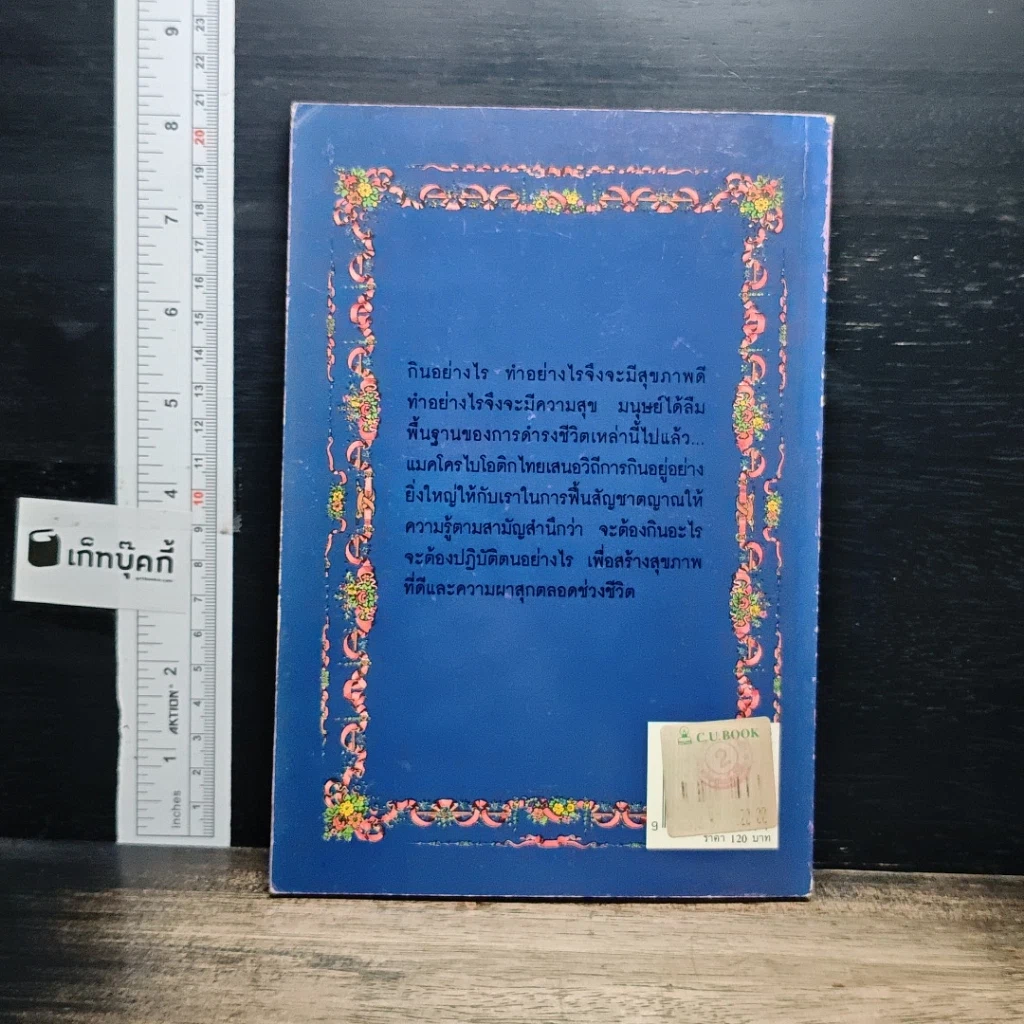 กินอย่างไร ทำอย่างไรจึงจะมีสุขภาพดี
ทำอย่างไรจึงจะมีความสุข มนุษย์ได้ลืม
พื้นฐานของการดำรงชีวิตเหล่านี้ไปแล้ว...
แมคโครไบโอติกไทยเสนอวิถีการกินอยู่อย่าง
ยิ่งใหญ่ให้กับเราในการฟื้นสัญชาตญาณให้
ความรู้ตามสามัญสำนึกว่า จะต้องกินอะไร
จะต้องปฏิบัติตนอย่างไร เพื่อสร้างสุขภาพ
ที่ดีและความผาสุกตลอดช่วงชีวิต
C.U.BOOK
2
9
ราคา 120 บาท
เก็ทบุ๊คกี้
AKTION
inches
1
2
3
4
5
6
7
8
9
1
2
3
4
5
6
7
8
9
10
11
12
13
14
15
16
17
18
19
20
21
22
23